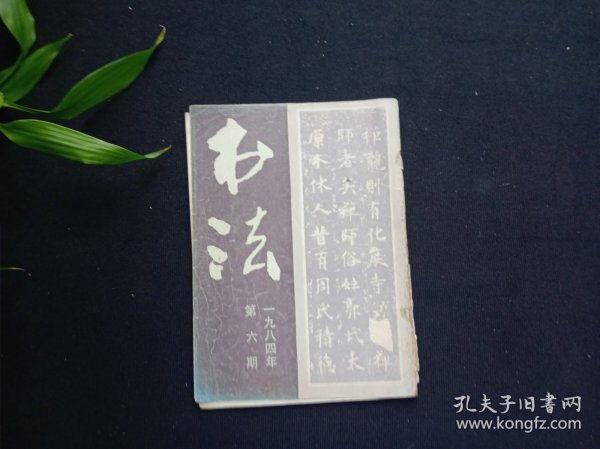 书法
一九八四年
第六期
和龍則有化度寺
師者矣禪師俗姓郭氏太
原介休人昔有周氏積德
孔夫子旧书网
www.kongfz.com